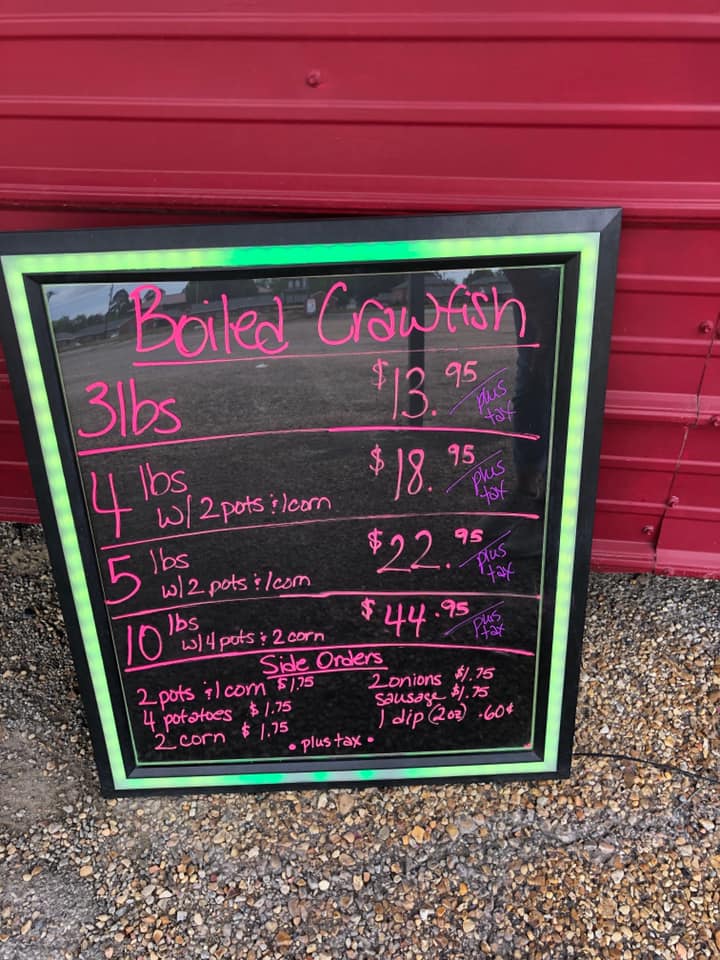 Boiled Crawfish
3lbs $13.95 plus tax
4 lbs $18.95 plus tax
w/ 2 pots & 1corn
5 lbs $22.95 plus tax
w/ 2 pots & 1corn
10 lbs $44.95 plus tax
w/ 4 pots & 2 corn
Side Orders
2 pots & 1 corn $1.75
4 potatoes $1.75
2 corn $1.75
2 onions $1.75
sausage $1.75
1 dip (2oz) .60¢
• plus tax •